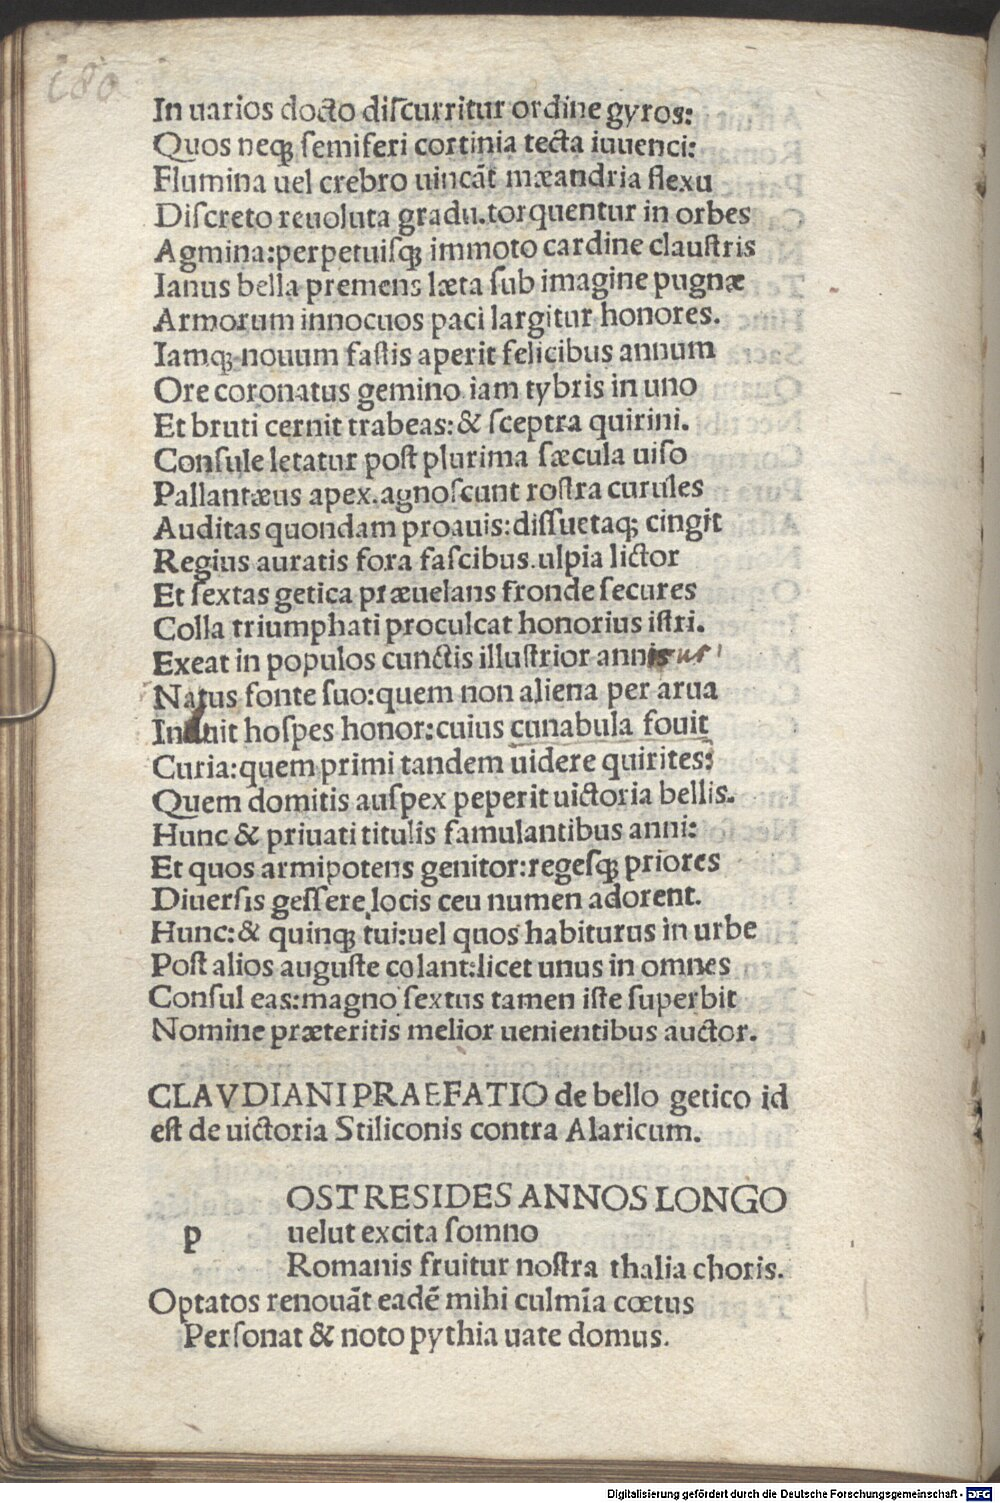 180
In uarios docto diſcurritur ordine gyros:
Quos neqꝫ ſemiferi cortinia tecta iuuenci:
Flumina uel crebro uincãt mæandria flexu
Diſcreto reuoluta gradu.torquentur in orbes
Agmina:perpetuiſqꝫ immoto cardine clauſtris
Ianus bella premens læta ſub imagine pugnæ
Armorum innocuos paci largitur honores.
Iamqꝫ nouum faſtis aperit felicibus annum
Ore coronatus gemino iam tybris in uno
Et bruti cernit trabeas:& ſceptra quirini.
Conſule letatur poſt plurima ſæcula uiſo
Pallantæus apex.agnoſcunt roſtra curules
Auditas quondam proauis:diſſuetaqꝫ cingit
Regius auratis fora faſcibus.ulpia lictor
Et ſextas getica præuelans fronde ſecures
Colla triumphati proculcat honorius iſtri.
Exeat in populos cunctis illuſtrior annis us
Natus fonte ſuo:quem non aliena per arua
Induit hoſpes honor:cuius cunabula fouit
Curia:quem primi tandem uidere quirites:
Quem domitis auſpex peperit uictoria bellis.
Hunc & priuati titulis famulantibus anni:
Et quos armipotens genitor:regeſqꝫ priores
Diuerſis geſſere locis ceu numen adorent.
Hunc:& quinqꝫ tui:uel quos habiturus in urbe
Poſt alios auguſte colant:licet unus in omnes
Conſul eas:magno ſextus tamen iſte ſuperbit
Nomine præteritis melior uenientibus auctor.
CLAVDIANI PRAEFATIO de bello getico id
eſt de uictoria Stiliconis contra Alaricum.
OST RESIDES ANNOS LONGO
p uelut excita ſomno
Romanis fruitur noſtra thalia choris.
Optatos renouãt eadẽ mihi culmĩa cœtus
Perſonat & noto pythia uate domus.
Digitalisierung gefördert durch die Deutsche Forschungsgemeinschaft - DFG